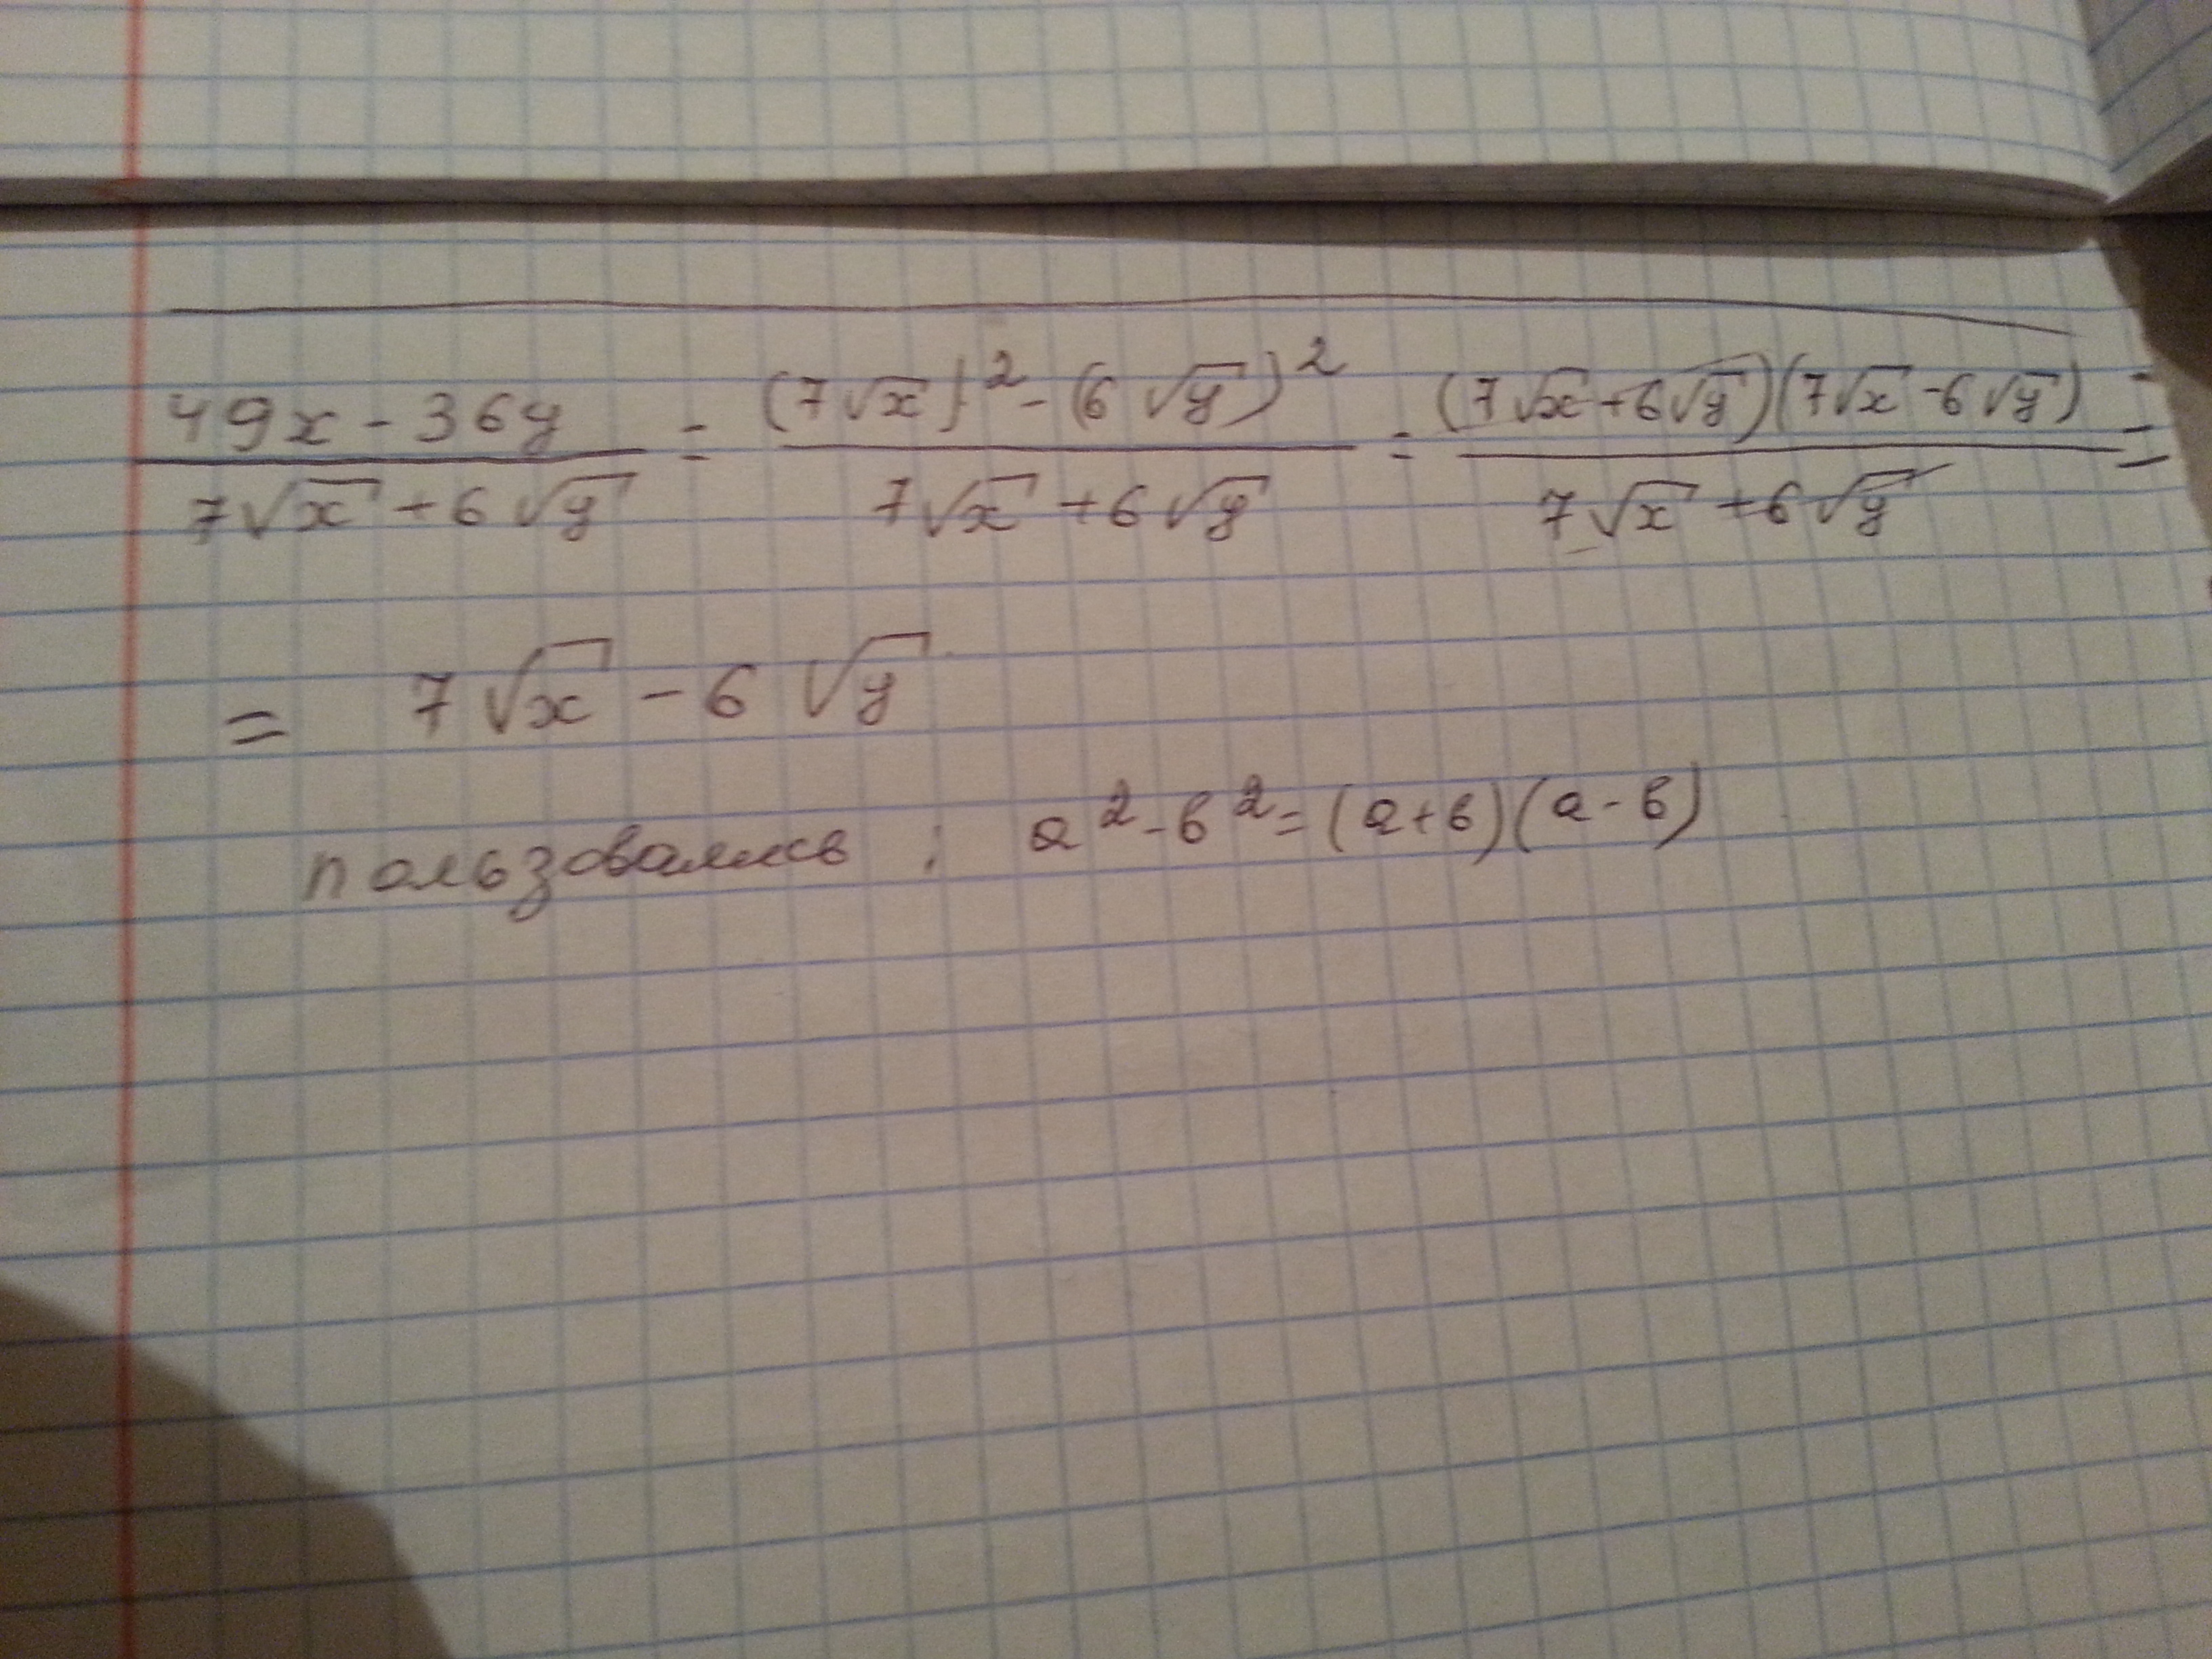 (49x - 36y)/(7√x + 6√y) = ((7√x)² - (6√y)²)/(7√x + 6√y) = ((7√x + 6√y)(7√x - 6√y))/(7√x + 6√y) =
= 7√x - 6√y
пользовались : a² - b² = (a+b)(a-b)